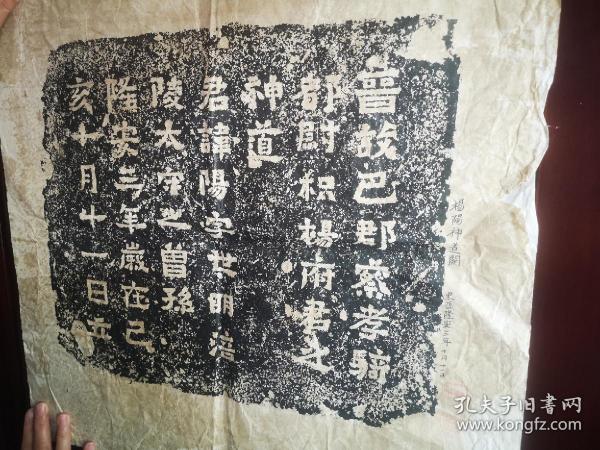 晉故巴郡察孝騎
都尉枳楊府君之
神道
君諱陽字世明涪
陵太守之曾孫
隆安三年歲在己
亥十月十一日立
楊陽神道闕
東晉隆安三年十月十一日
孔夫子旧書网
www.kongfz.com